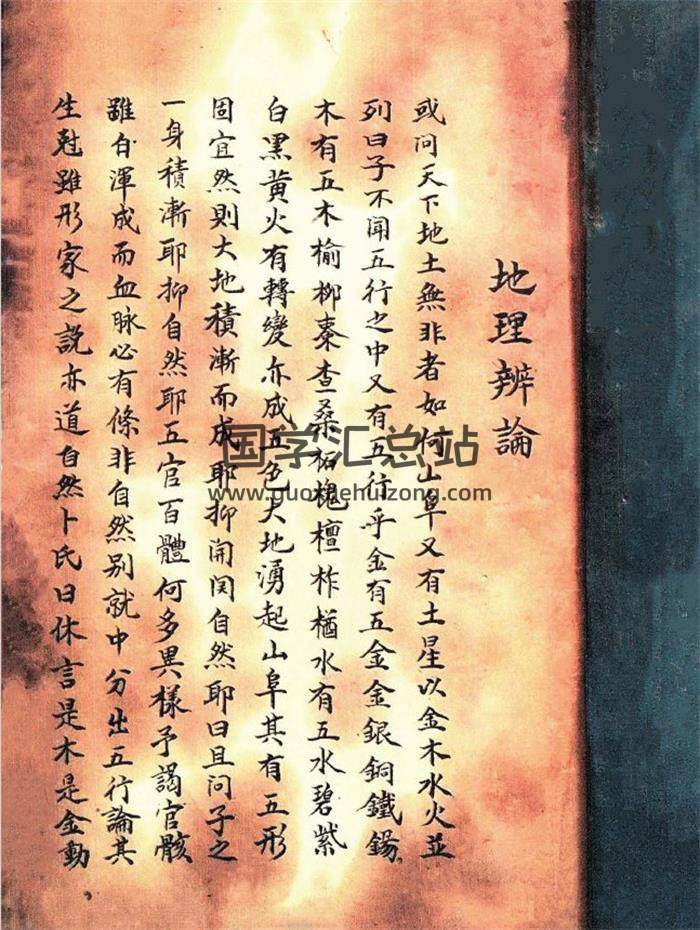 地理辨論
或問天下地土無非者如何山阜又有土星以金木水火並
列曰子不聞五行之中又有五行乎金有五金金銀銅鐵錫
木有五木榆柳棗查桑柘槐檀柞楢水有五水碧紫
白黑黄火有轉變亦成五色大地湧起山阜其有五形
固宜然則大地積漸而成耶抑開闢自然耶曰且問子之
一身積漸耶抑自然耶五官百體何多異樣予謁官骸
雖自渾成而血脉必有條非自然别就中分出五行論其
生尅雖形家之說亦道自然卜氏曰休言是木是金動
国学汇总站
www.guoxuehuizong.com